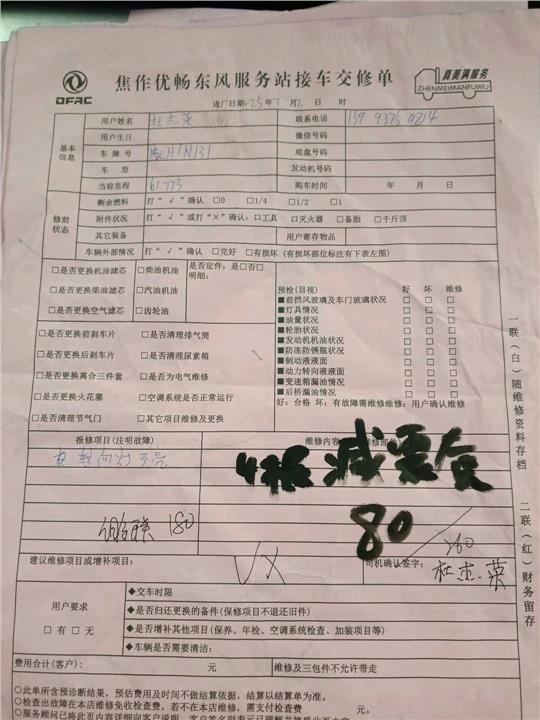 DFAC
焦作优畅东风服务站接车交修单
真美满服务
ZHENMEIMANFUWU
进厂日期：25年7月2日 时
基本信息
用户姓名 杜杰荣 联系电话 159 9375 0814
用户生日 微信号码
车牌号 底盘号码
车型 发动机号码
当前里程 61773 购车时间 年 月 日
修前状态
剩余燃料 打“√”确认 □0 □1/4 □1/2 □1
附件状况 打“√”或打“×”确认：□工具 □灭火器 □备胎 □千斤顶
其它装备 用户寄存物品
车辆外部情况 打“√”确认 □完好 □有损坏（有损坏部位标注有下表左图）
□是否更换机油滤芯 □柴油机油 是否定件：是□否□
□是否更换柴油滤芯 □汽油机油 明细：
□是否更换空气滤芯 □齿轮油
□是否更换前刹车片 □是否清理排气筒
□是否更换后刹车片 □是否清理尿素箱
□是否更换离合三件套 □是否为电气维修
□是否更换火花塞 □空调系统是否正常运行
□是否清理节气门 □其它项目维修及更换
预检(目视) 好 坏 维修
■前挡风玻璃及车门玻璃状况 □ □ □
■灯具情况 □ □ □
■油量状况 □ □ □
■轮胎状况 □ □ □
■发动机机油状况 □ □ □
■防冻防锈瓶状况 □ □ □
■制动液液面 □ □ □
■动力转向液液面 □ □ □
■变速箱漏油情况 □ □ □
■后桥漏油情况 □ □ □
好：合格 坏：有故障需维修维修：用户确认维修
报修项目(注明故障) 维修内容
转向灯不亮
减震
180
80
260
建议维修项目或增补项目： 司机确认签字：杜杰荣
用户要求
□有 □无
◆交车时限
◆是否归还更换的备件(保修项目不退还旧件)
◆是否增补其他项目(保养、年检、空调系统检查、加装项目等)
◆车辆是否需要清洁：
费用合计(客户)： 元 维修及三包件不允许带走
○此单所含预诊断结果，预估费用及时间不做结算依据，结算以结算单为准。
○检查出故障在本店维修免收检查费，若不在本店维修，需支付检查费 元。
一联（白）随维修资料存档
二联（红）财务留存